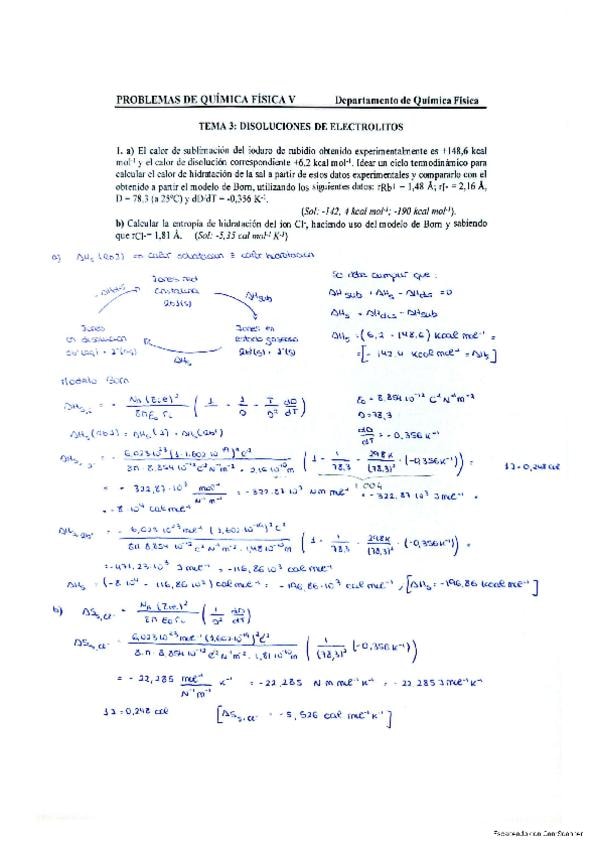 PROBLEMAS DE QUÍMICA FÍSICA V Departamento de Química Física
TEMA 3: DISOLUCIONES DE ELECTROLITOS
1. a) El calor de sublimación del ioduro de rubidio obtenido experimentalmente es +148,6 kcal
mol⁻¹ y el calor de disolución correspondiente +6,2 kcal mol⁻¹. Idear un ciclo termodinámico para
calcular el calor de hidratación de la sal a partir de estos datos experimentales y compararlo con el
obtenido a partir el modelo de Born, utilizando los siguientes datos: rRb+ = 1,48 Å; rI- = 2,16 Å,
D = 78,3 (a 25°C) y dD/dT = -0,356 K⁻¹.
(Sol: -142, 4 kcal mol⁻¹; -190 kcal mol⁻¹).
b) Calcular la entropía de hidratación del ion Cl-, haciendo uso del modelo de Born y sabiendo
que rCl-= 1,81 Å. (Sol: -5,35 cal mol⁻¹ K⁻¹)
a) ΔHs (RbI) = calor solvatacion ≡ calor hidratacion
Iones red
cristalina
RbI(s)
-ΔHdis
ΔHsub
Iones
en disolucion
Rb⁺(aq) + I⁻(aq)
Iones en
estado gaseoso
Rb⁺(g) + I⁻(g)
ΔHs
Se debe cumplir que :
ΔHsub + ΔHs - ΔHdis = 0
ΔHs = ΔHdis - ΔHsub
ΔHs = (6,2 - 148,6) Kcal mol⁻¹ =
= [- 142,4 Kcal mol⁻¹ = ΔHs]
Modelo Born
ΔHs,i = - NA (Zi e)² / 8π ε0 ri ( 1 - 1/D - T/D² dD/dT )
ε0 = 8,854·10⁻¹² C² N⁻¹ m⁻²
D = 78,3
dD/dT = - 0,356 K⁻¹
ΔHs (RbI) = ΔHs (I⁻) + ΔHs (Rb⁺)
ΔHs, I⁻ = - 6,023·10²³ (1·1,602·10⁻¹⁹)² C² / 8π · 8,854·10⁻¹² C² N⁻¹ m⁻² · 2,16·10⁻¹⁰ m ( 1 - 1/78,3 - 298K/(78,3)² · (-0,356 K⁻¹) ) =
1,004
1J = 0,248 cal
= - 322,87·10³ mol⁻¹/N⁻¹ m⁻¹ = - 322,87·10³ N m mol⁻¹ = - 322,87·10³ J mol⁻¹ =
= - 8·10⁴ cal mol⁻¹
ΔHs, Rb⁺ = - 6,023·10²³ mol⁻¹ (1,602·10⁻¹⁹)² C² / 8π · 8,854·10⁻¹² C² N⁻¹ m⁻² · 1,48·10⁻¹⁰ m ( 1 - 1/78,3 - 298K/(78,3)² · (-0,356 K⁻¹) ) =
= - 471,23·10³ J mol⁻¹ = - 116,86·10³ cal mol⁻¹
ΔHs = (-8·10⁴ - 116,86·10³) cal mol⁻¹ = - 196,86·10³ cal mol⁻¹, [ΔHs = -196,86 kcal mol⁻¹]
b) ΔSs, Cl⁻ = NA (Zi e)² / 8π ε0 ri ( 1/D² dD/dT )
ΔSs, Cl⁻ = 6,023·10²³ mol⁻¹ (1,602·10⁻¹⁹)² C² / 8·π · 8,854·10⁻¹² C² N⁻¹ m⁻² · 1,81·10⁻¹⁰ m ( 1/(78,3)² (-0,356 K⁻¹) )
= - 22,285 mol⁻¹/N⁻¹ m⁻¹ K⁻¹ = - 22,285 N m mol⁻¹ K⁻¹ = - 22,285 J mol⁻¹ K⁻¹
1J = 0,248 cal [ΔSs, Cl⁻ = - 5,526 cal mol⁻¹ K⁻¹]
Escaneado con CamScanner